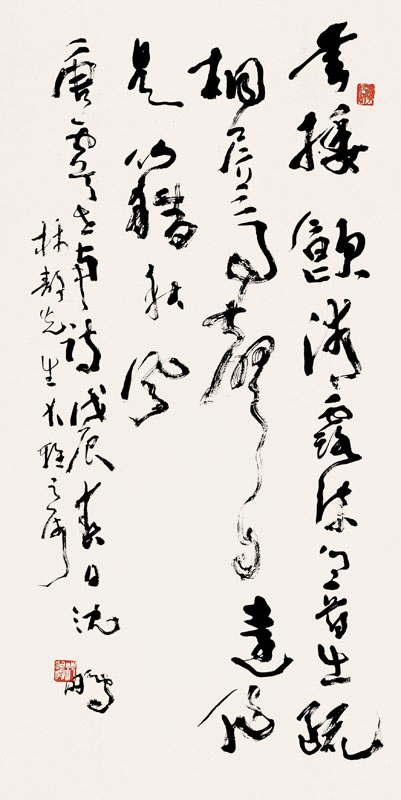 垂緌飲清露流響出疏
桐居高聲自遠非
是籍秋風
唐虞世南詩戊辰春日沈鵬
先生大雅之屬